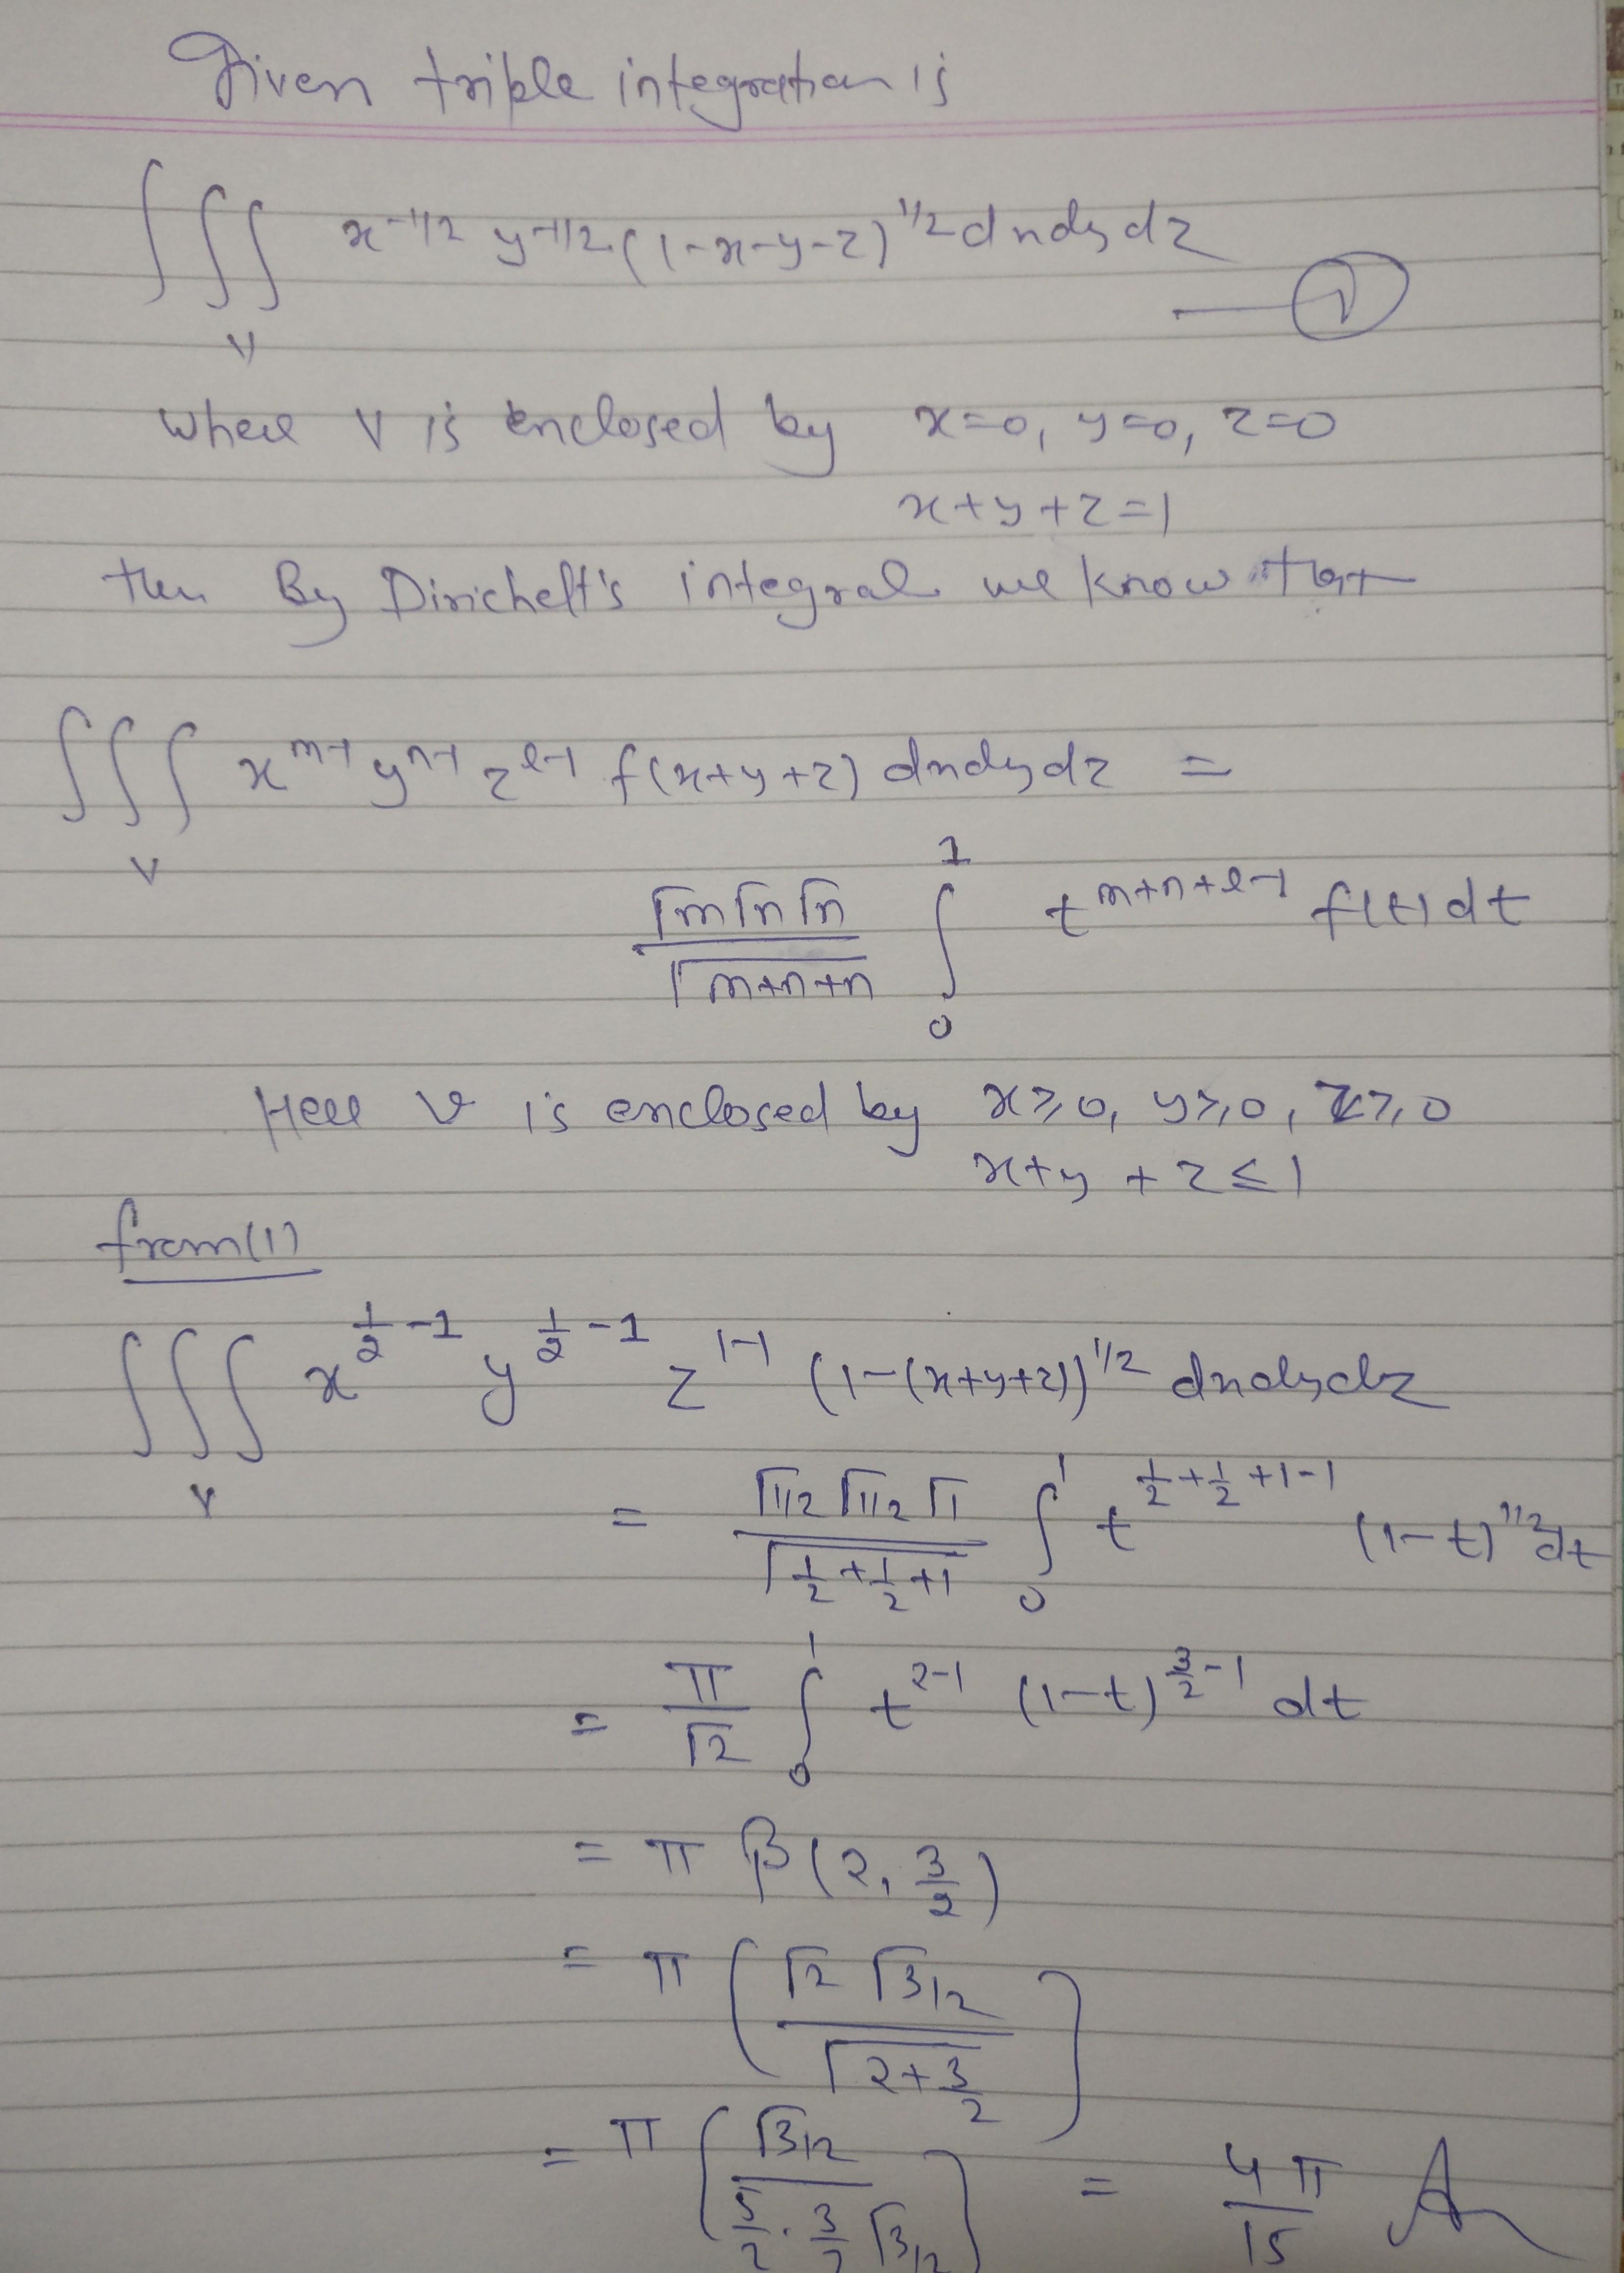 Given triple integration is
∫∫∫ x^{-1/2} y^{-1/2} (1-x-y-z)^{1/2} dxdydz
— ①
V
where V is enclosed by x=0, y=0, z=0
x+y+z=1
then By Dirichelt's integral we know that
∫∫∫ x^{m-1} y^{n-1} z^{l-1} f(x+y+z) dxdydz =
V
Γm Γn Γn / Γm+n+n ∫_0^1 t^{m+n+l-1} f(t) dt
Here V is enclosed by x≥0, y≥0, z≥0
x+y+z≤1
from(1)
∫∫∫ x^{1/2 -1} y^{1/2 -1} z^{1-1} (1-(x+y+z))^{1/2} dxdydz
V
= Γ1/2 Γ1/2 Γ1 / Γ1/2+1/2+1 ∫_0^1 t^{1/2+1/2+1-1} (1-t)^{1/2} dt
= π/Γ2 ∫_0^1 t^{2-1} (1-t)^{3/2 -1} dt
= π β(2, 3/2)
= π ( Γ2 Γ3/2 / Γ2+3/2 )
= π ( Γ3/2 / 5/2 · 3/2 Γ3/2 ) = 4π/15